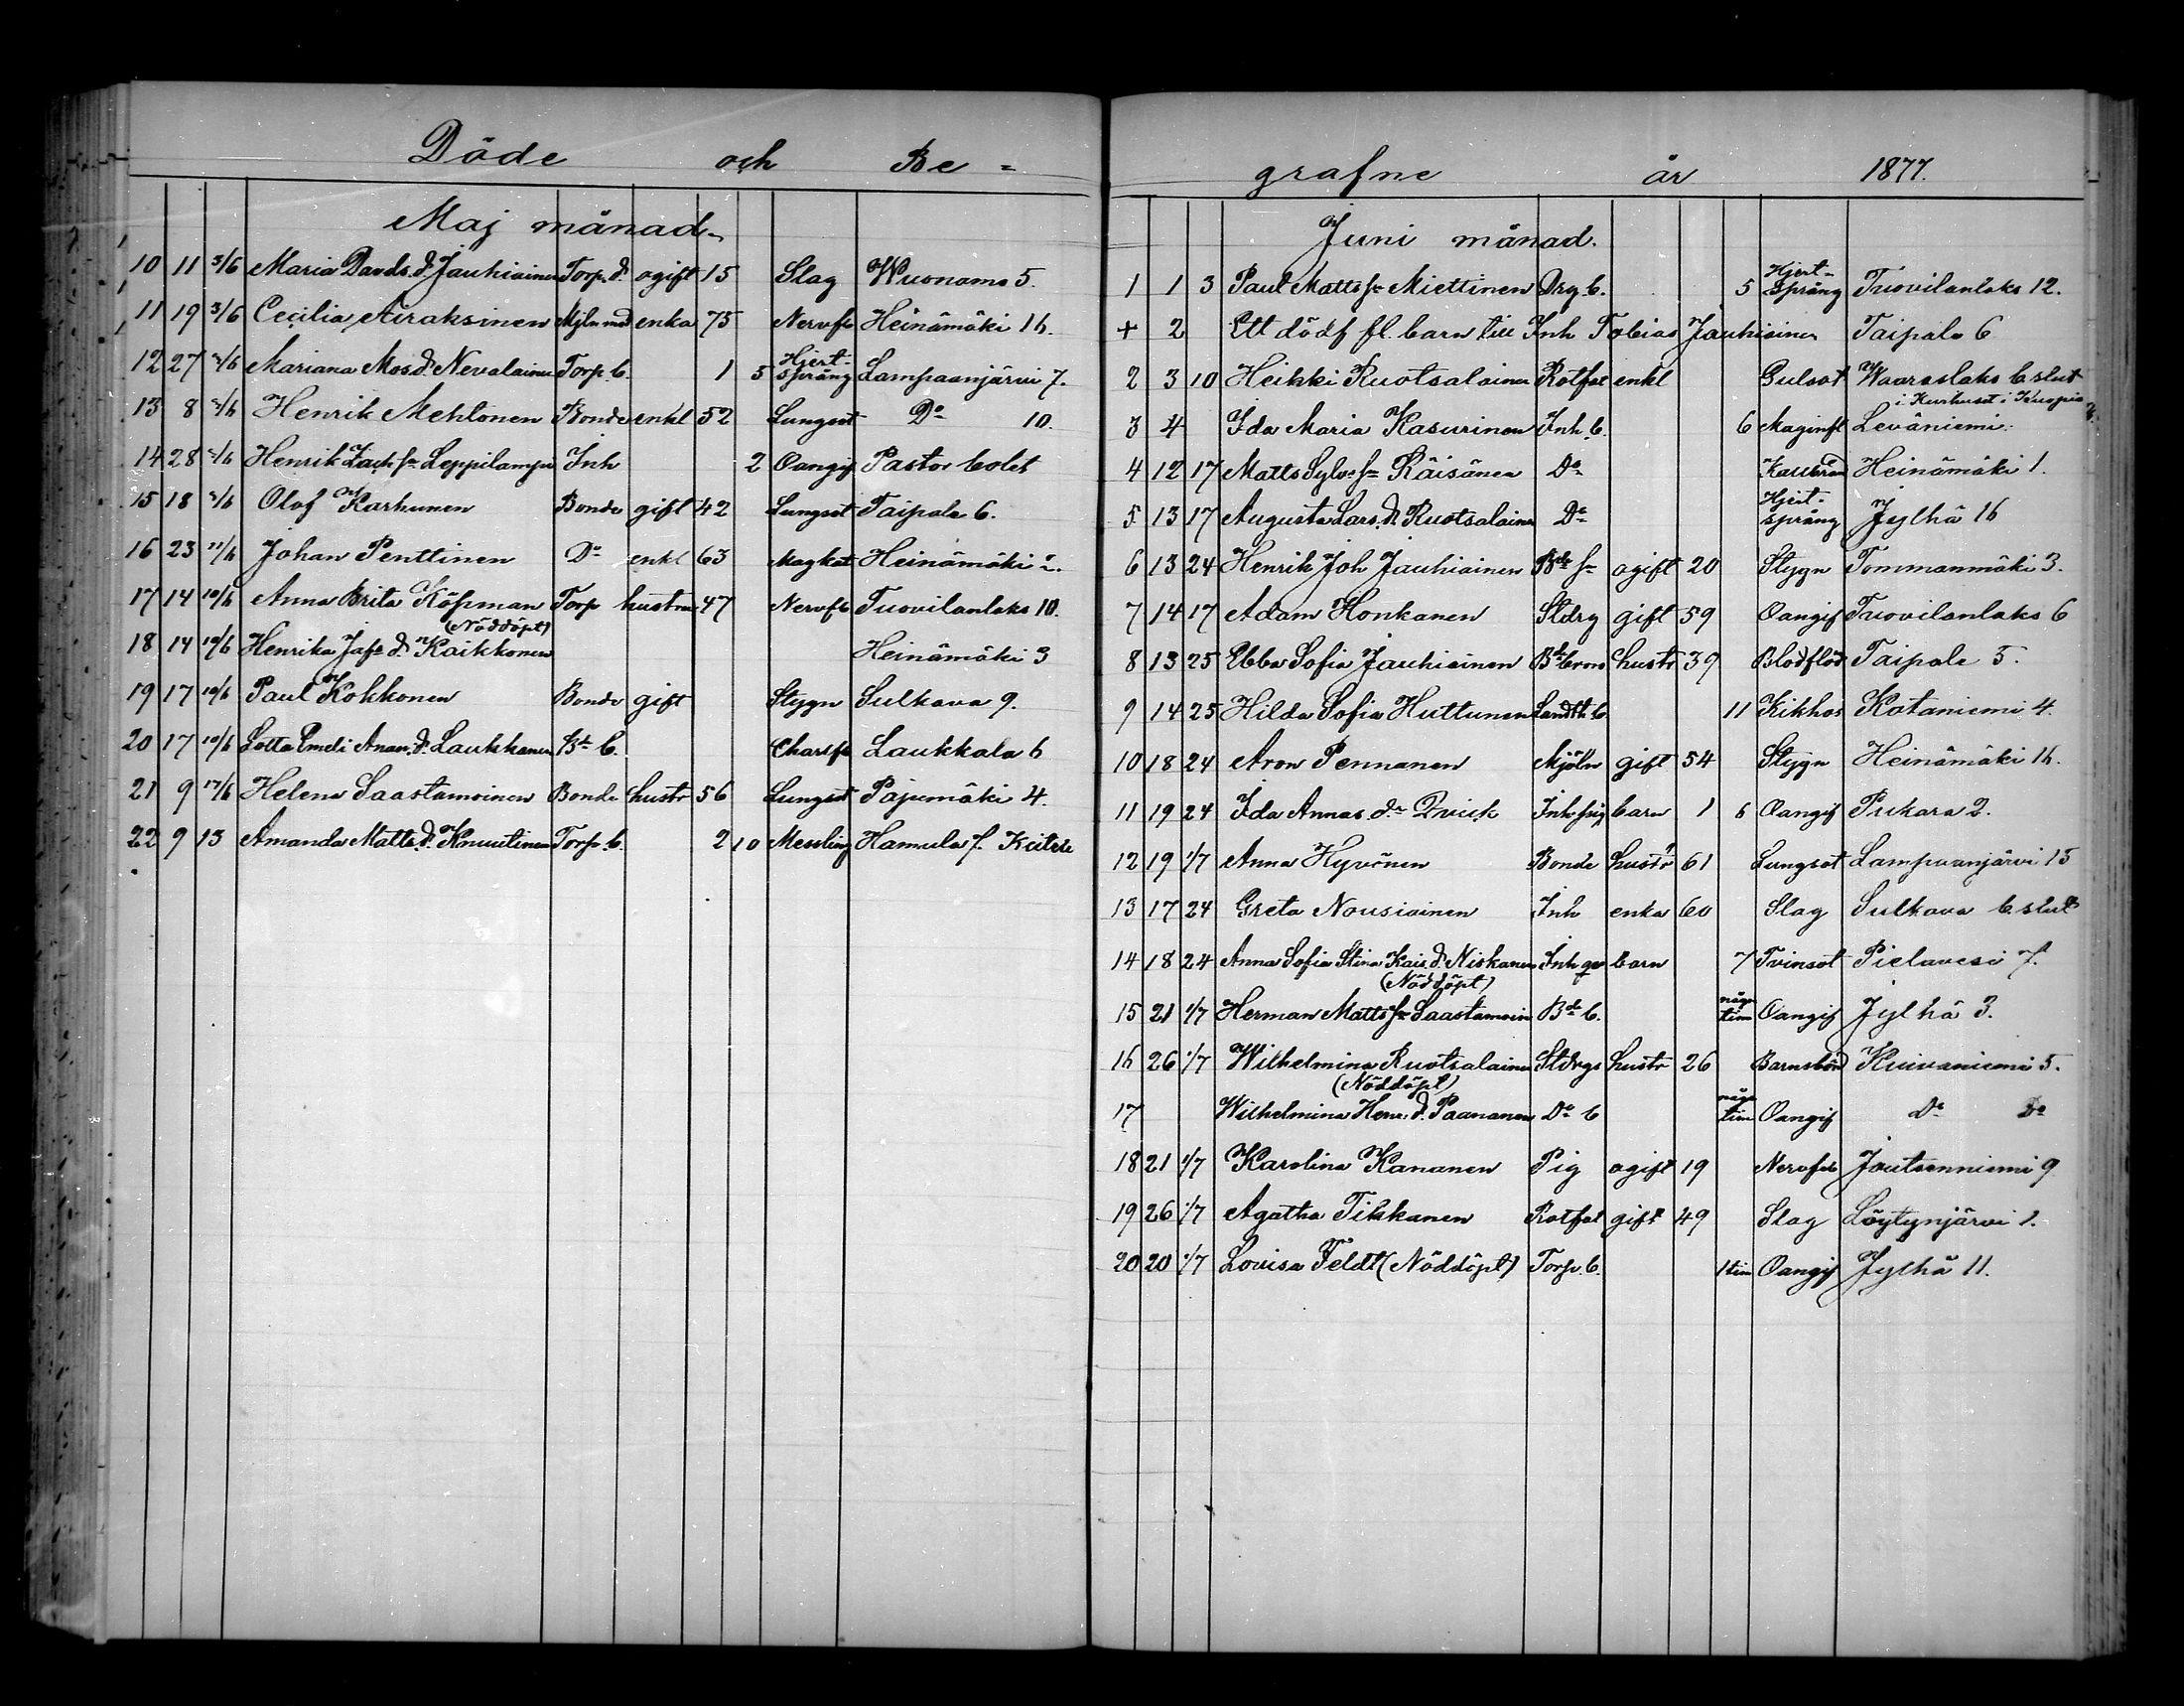 Döde och Be=
Maj månad
10 11 3/6 Maria Davds.d. Jauhiainen Torp.d. ogift 15 Slag Wuonamo 5.
11 19 3/6 Cecilia Airaksinen enka 75 Nervfb Heinämäki 16.
12 27 Mariana Mos.d. Nevalainen Torp.b. 1 5 Hjert-språng Lampaanjärvi 7.
13 8 Henrik Mehtonen Bonde enkl 52 Lungsot Do 10.
14 28 Henrik Zach.sn Leppilampi Inh 2 Oangif Pastor bolet
15 18 Olof Karhunen Bonde gift 42 Lungsot Taipale 6.
16 23 11/6 Johan Penttinen Do enkl 63 Magkat Heinämäki 2.
17 14 10/6 Anna Brita Köpman Torp hustru 47 Nervfb Tuovilanlaks 10.
(Nöddöpt)
18 14 10/6 Henrika Jafs d. Kaikkonen Heinämäki 3
19 17 10/6 Paul Kokkonen Bonde gift Stygn Sulkava 9.
20 17 10/6 Lotta Emeli Anan.d. Laukkanen Bd b. Laukkala 6
21 9 17/6 Helena Saastamoinen Bonde hustr 56 Lungsot Pajumäki 4.
22 9 13 Amanda Matts.d. Knuutinen Torp.b. 2 10 Messling Hamula 7. Keitele
grafne år 1877.
Juni månad.
1 1 3 Paul Matts sn Miettinen Drg b. 5 Hjert-språng Tuovilanlaks 12.
+ 2 Ett dödf fl. barn till Inh Tobias Jauhiainen Taipale 6
2 3 10 Heikki Ruotsalainen Rotfat enkl Gulsot Waaraslaks b.slut
i Kurhuset i Kuopio
3 4 Ida Maria Kasurinen Inh.b. 6 Maginfl Leväniemi.
4 12 17 Matts Sylv.sn Räisänen Do Kallbrand Heinämäki 1.
5 13 17 Augusta Lars.d. Ruotsalainen Do Hjert-språng Jylhä 16
6 13 24 Henrik Joh Jauhiainen Bde sn ogift 20 Stygn Tommanmäki 3.
7 14 17 Adam Honkanen Stdrg gift 59 Oangif Tuovilanlaks 6
8 13 25 Ebba Sofia Jauhiainen hustr 39 Blodflöd Taipale 5.
9 14 25 Hilda Sofia Huttunen Landtb b. 11 Kikhos Kataniemi 4.
10 18 24 Aron Pennanen Mjöln gift 54 Stygn Heinämäki 16.
11 19 24 Ida Annas.d. Qvick Inh pig barn 1 6 Oangif Pukara 2.
12 19 1/7 Anna Hyvönen Bonde hustr 61 Lungsot Lampaanjärvi 15
13 17 24 Greta Nousiainen Inh enka 60 Slag Sulkava b.slut
14 18 24 Anna Sofia Stina Kais.d. Niskanen Inh qv barn 7 Tvinsot Pielavesi 7.
(Nöddöpt)
15 21 1/7 Herman Matts sn Saastamoin Bde b. någr tim Oangif Jylhä 3.
16 26 1/7 Wilhelmina Ruotsalainen Stdrgs hustr 26 Barnsbörd Kuivaniemi 5.
(Nöddöpt)
17 Wilhelmina Henr.d. Paananen Do b någr tim Oangif Do Do
18 21 1/7 Karolina Kananen Pig ogift 19 Nervfeb Joutsenniemi 9
19 26 1/7 Agatha Tikkanen Rotfat gift 49 Slag Löytynjärvi 1.
20 20 1/7 Lovisa Feldt (Nöddöpt) Torp.b. 1 tim Oangif Jylhä 11.